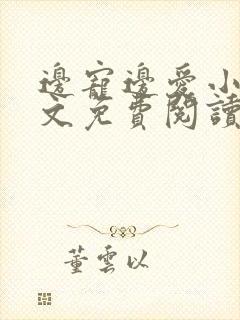 邊寵邊愛小
文免費閱讀
董雲以